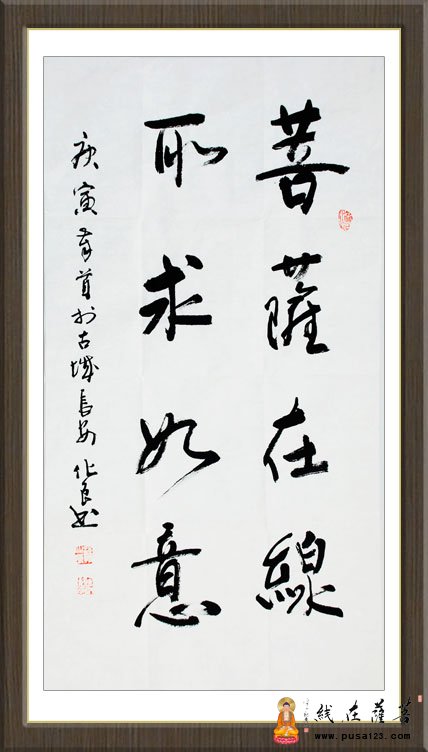 菩薩在線
所求如意
庚寅春首於古城長安 化良書
菩薩在线
www.pusa123.com